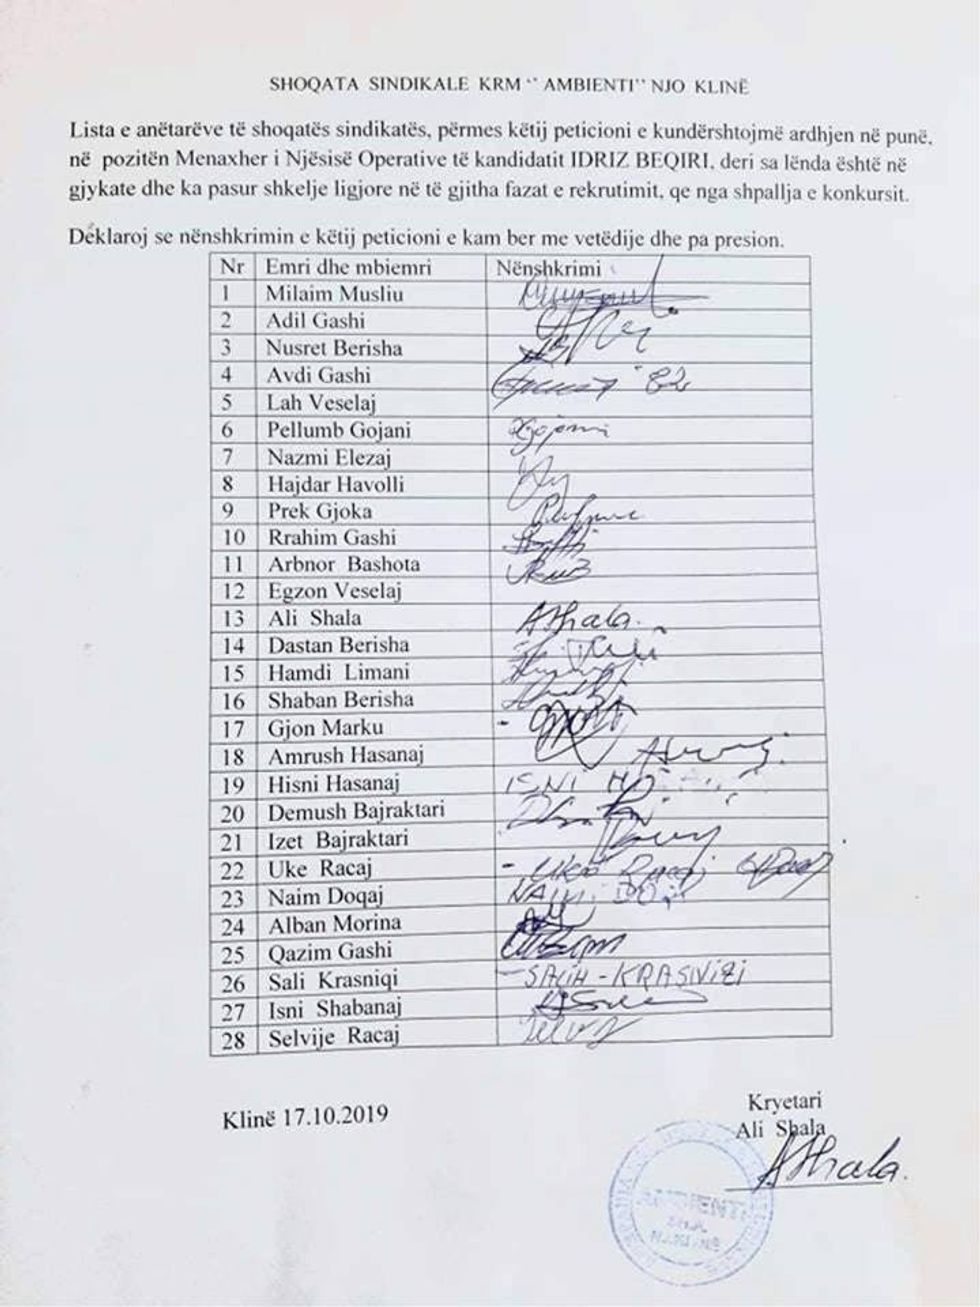 SHOQATA SINDIKALE KRM “ AMBIENTI” NJO KLINË
Lista e anëtarëve të shoqatës sindikatës, përmes këtij peticioni e kundërshtojmë ardhjen në punë,
në pozitën Menaxher i Njësisë Operative të kandidatit IDRIZ BEQIRI, deri sa lënda është në
gjykate dhe ka pasur shkelje ligjore në të gjitha fazat e rekrutimit, qe nga shpallja e konkursit.
Deklaroj se nënshkrimin e këtij peticioni e kam ber me vetëdije dhe pa presion.
Nr Emri dhe mbiemri Nënshkrimi
1 Milaim Musliu
2 Adil Gashi
3 Nusret Berisha
4 Avdi Gashi
5 Lah Veselaj
6 Pellumb Gojani
7 Nazmi Elezaj
8 Hajdar Havolli
9 Prek Gjoka
10 Rrahim Gashi
11 Arbnor Bashota
12 Egzon Veselaj
13 Ali Shala AShala.
14 Dastan Berisha
15 Hamdi Limani
16 Shaban Berisha
17 Gjon Marku
18 Amrush Hasanaj
19 Hisni Hasanaj ISNI
20 Demush Bajraktari
21 Izet Bajraktari
22 Uke Racaj - Ukë Racaj
23 Naim Doqaj NAIM
24 Alban Morina
25 Qazim Gashi
26 Sali Krasniqi - SALIH - KRASNIQI
27 Isni Shabanaj
28 Selvije Racaj
Klinë 17.10.2019
Kryetari
Ali Shala
AShala.
AMBIENTI